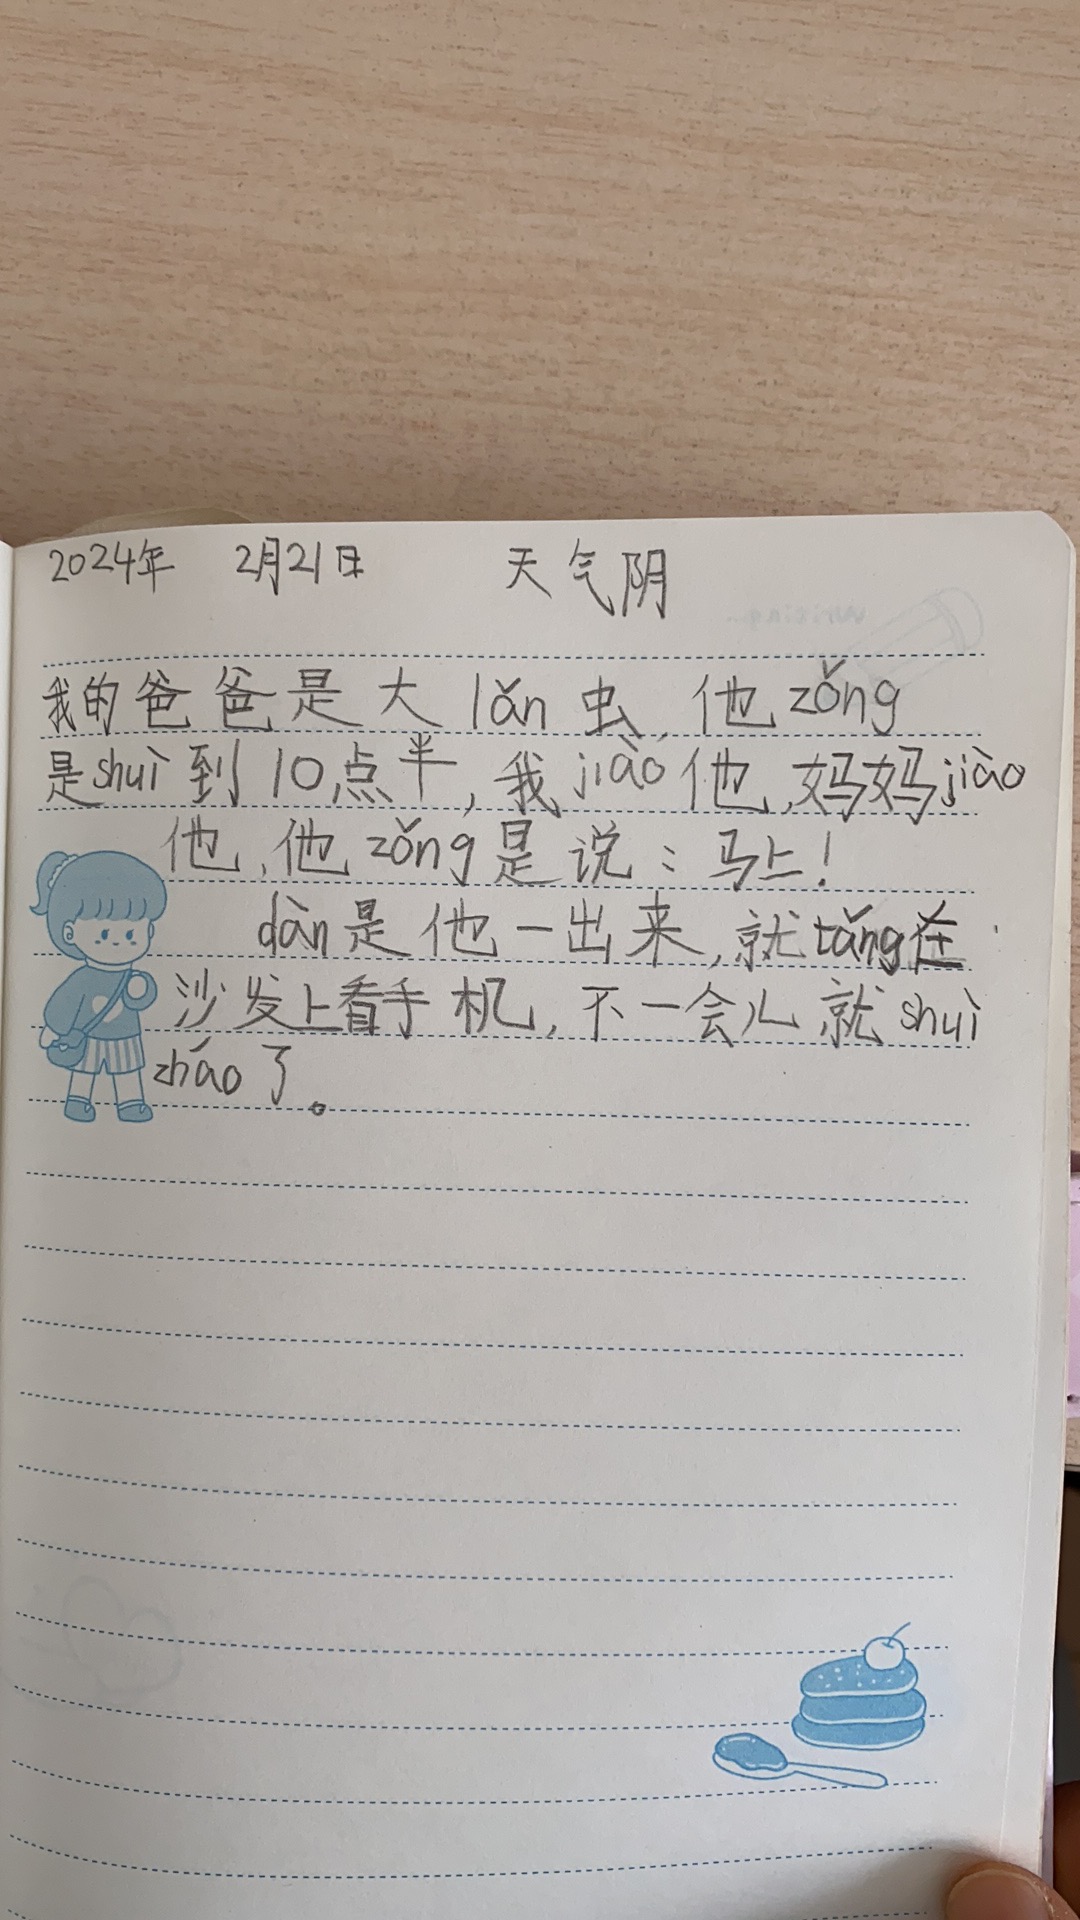 2024年 2月21日 天气阴
我的爸爸是大lǎn虫,他zǒng
是shuì到10点半,我jiào他,妈妈jiào
他,他zǒng是说:马上!
dàn是他一出来,就tǎng在
沙发上看手机,不一会儿就shuì
zháo了。